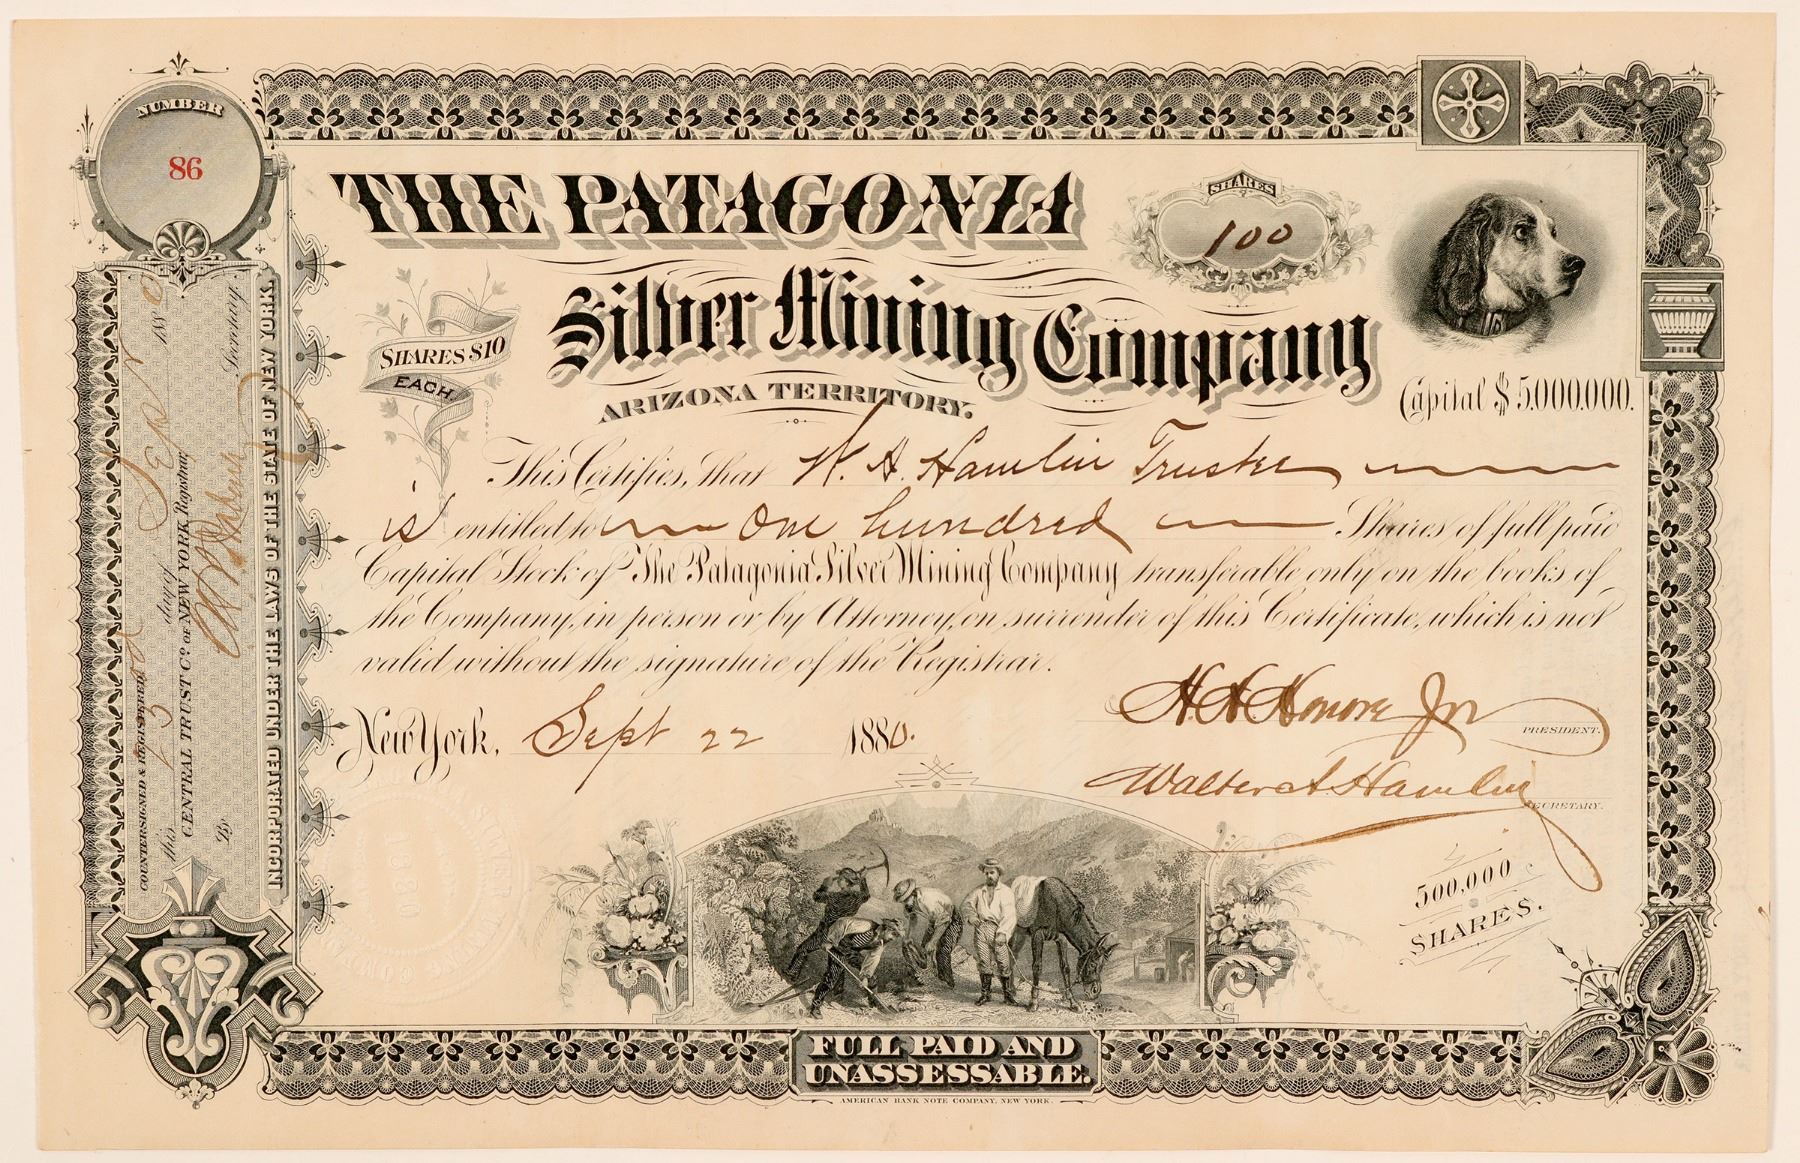 NUMBER
86
THE PATAGONIA
SHARES
100
Silver Mining Company
SHARES $10
EACH
ARIZONA TERRITORY.
Capital $5,000,000.
This Certifies, that W. A. Hamlin Trustee
is entitled to One hundred Shares of full paid
Capital Stock of The Patagonia Silver Mining Company transferable only on the books of
the Company, in person or by Attorney, on surrender of this Certificate, which is not
valid without the signature of the Registrar.
New York, Sept 22 1880.
H. H. Honore Jr
PRESIDENT.
Walter A. Hamlin
SECRETARY.
500,000
SHARES.
COUNTERSIGNED & REGISTERED
this 23 day of Sept 1880
CENTRAL TRUST CO. OF NEW YORK, Registrar,
By
Secretary.
INCORPORATED UNDER THE LAWS OF THE STATE OF NEW YORK.
1880
FULL PAID AND
UNASSESSABLE.
AMERICAN BANK NOTE COMPANY, NEW YORK.